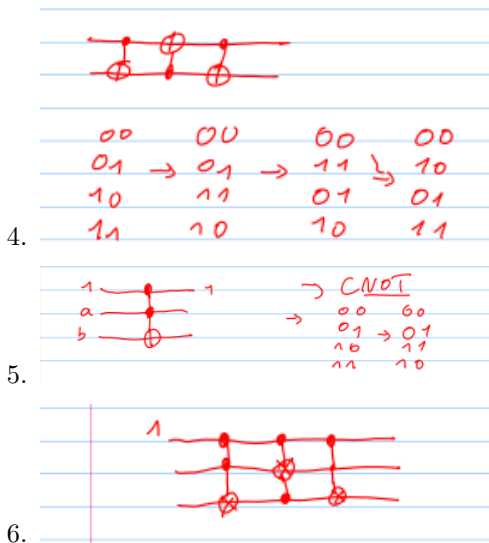 00 00 00 00
01 → 01 → 11 → 10
10 11 01 01
4. 11 10 10 11
1 1 → CNOT
a → 00 00
b 01 → 01
10 11
5. 11 10
1
6.